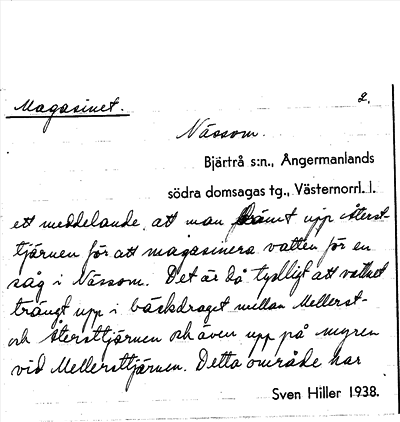 Magasinet.
2.
Nässom.
Bjärtrå s:n., Ångermanlands
södra domsagas tg., Västernorrl. l.
ett meddelande att man dämt upp Återst-
tjärnen för att magasinera vatten för en
såg i Nässom. Det är då tydligt att vattnet
trängt upp i bäckdraget mellan Mellerst-
och Återsttjärnen och även upp på myren
vid Mellersttjärnen. Detta område har
Sven Hiller 1938.